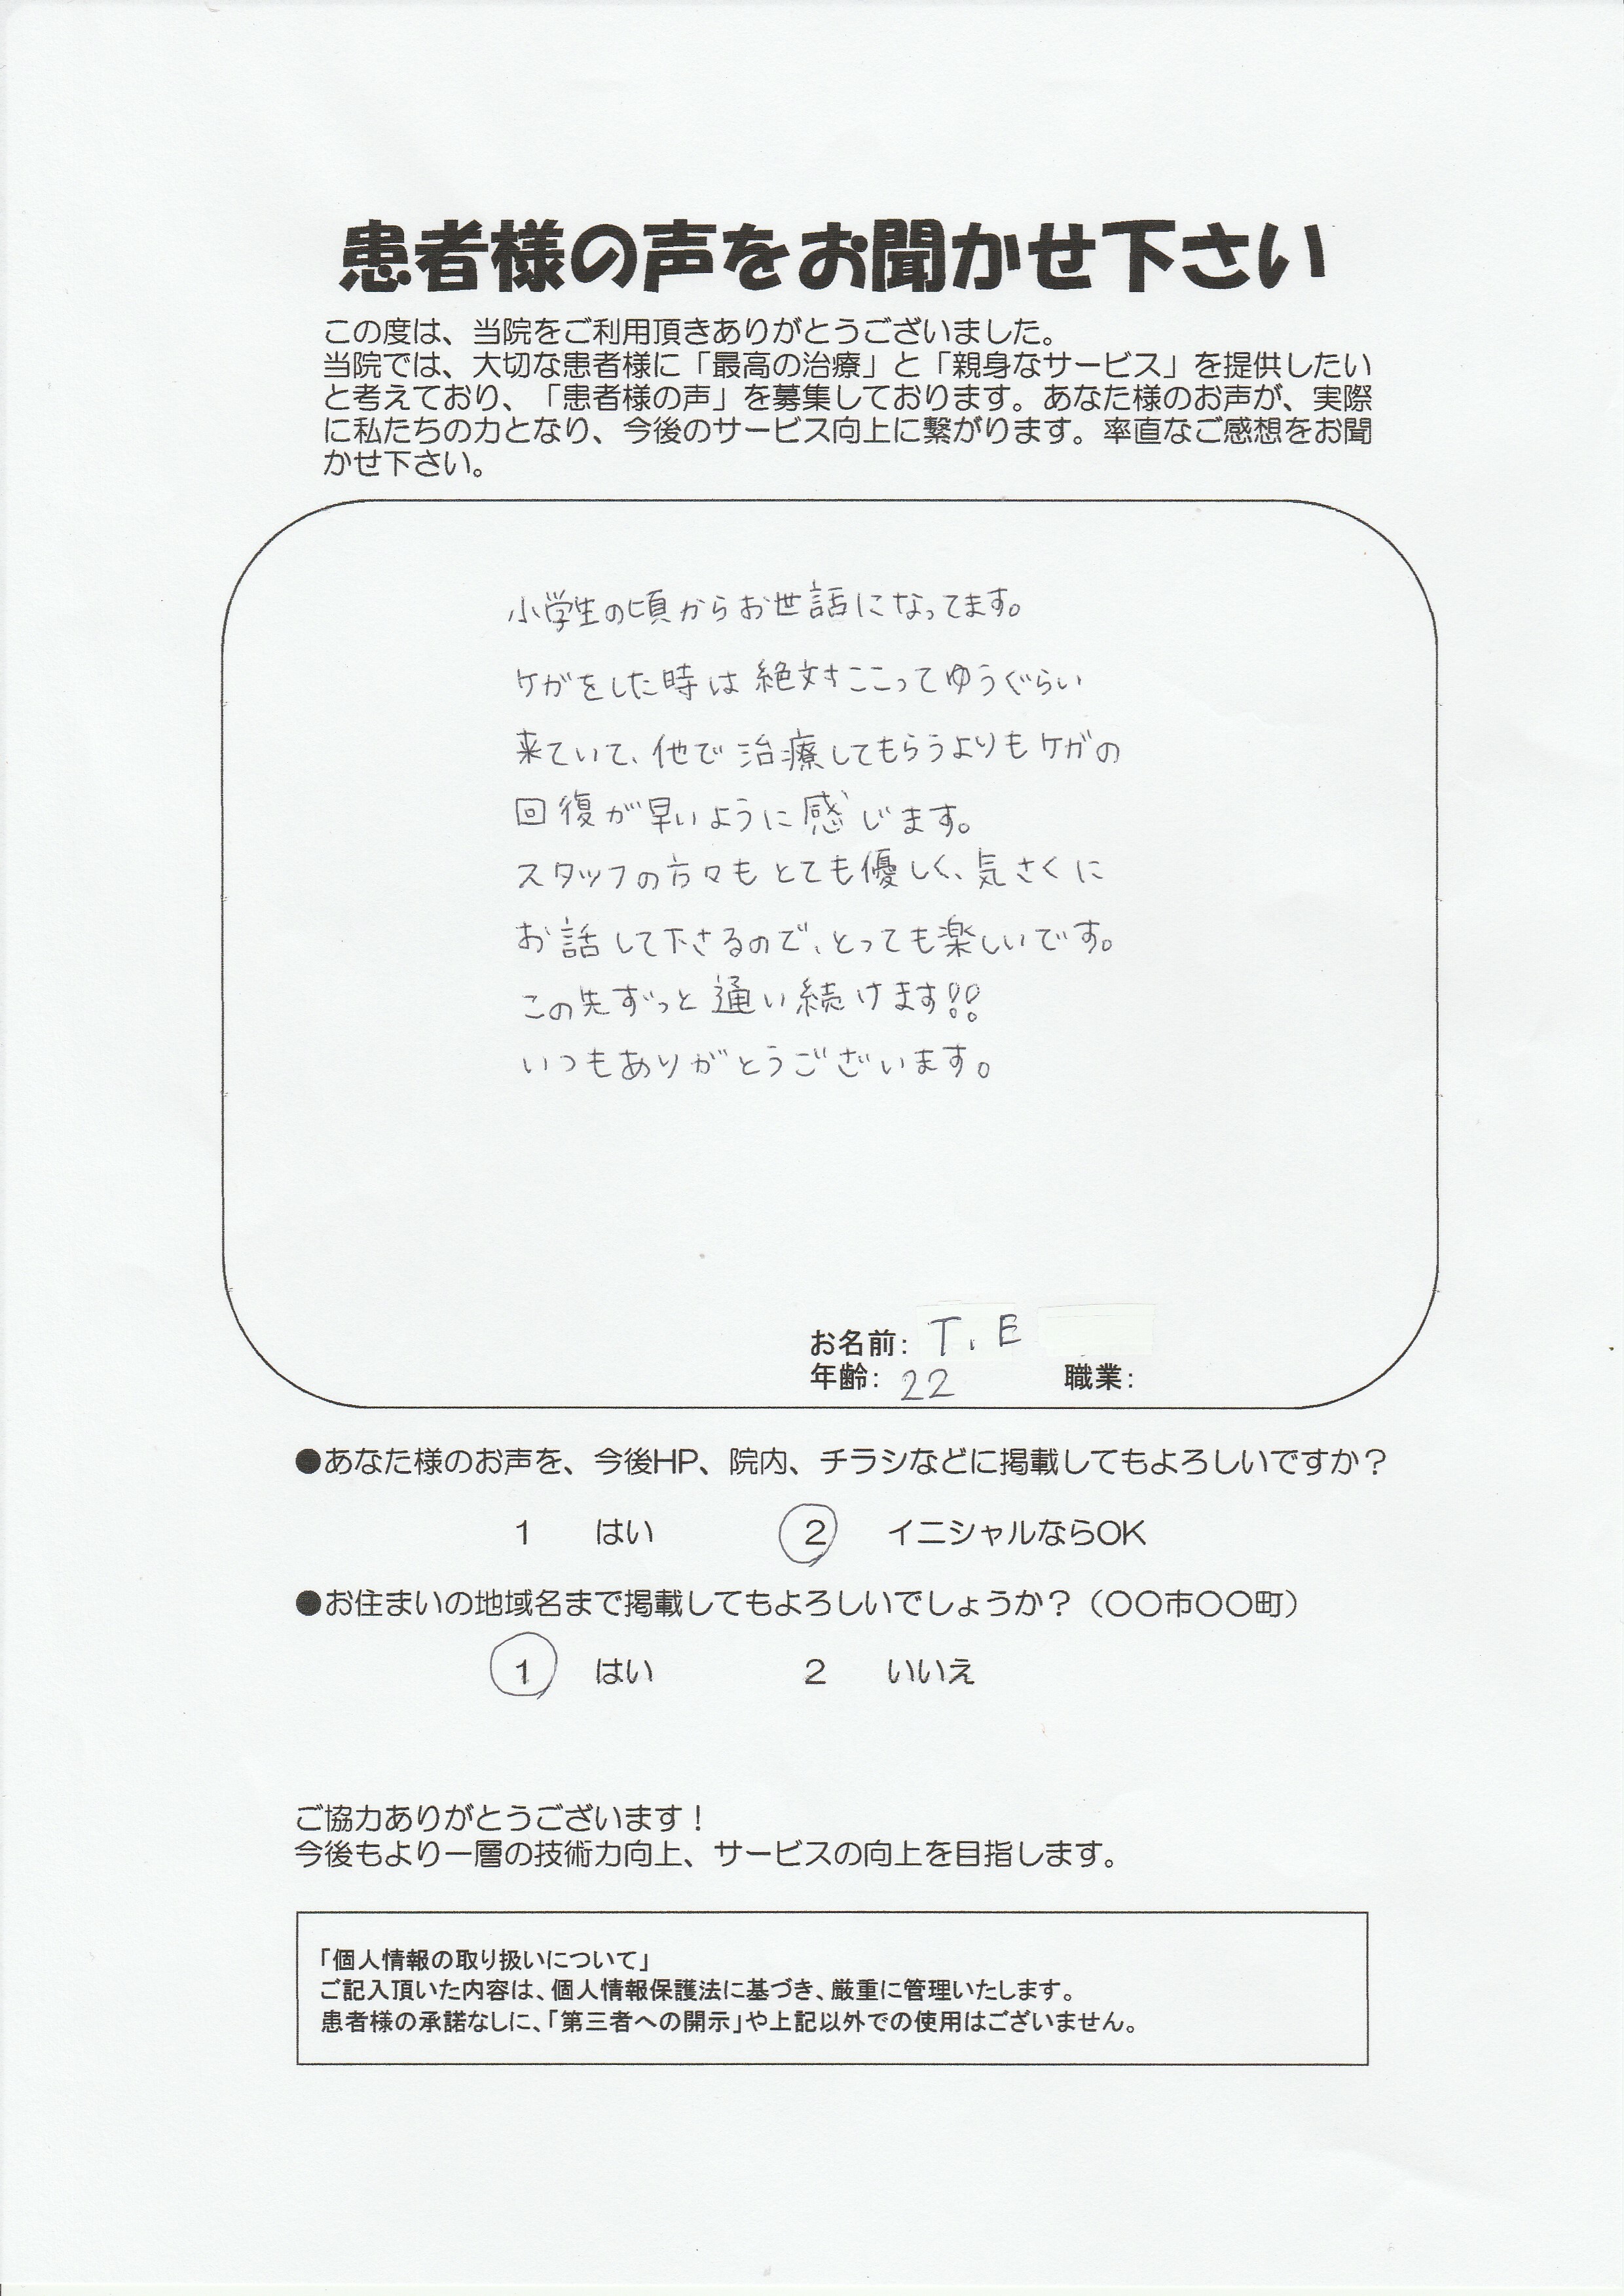 患者様の声をお聞かせ下さい
この度は、当院をご利用頂きありがとうございました。
当院では、大切な患者様に「最高の治療」と「親身なサービス」を提供したい
と考えており、「患者様の声」を募集しております。あなた様のお声が、実際
に私たちの力となり、今後のサービス向上に繋がります。率直なご感想をお聞
かせ下さい。
小学生の頃からお世話になってます。
ケガをした時は絶対ここってゆうぐらい
来ていて、他で治療してもらうよりもケガの
回復が早いように感じます。
スタッフの方々もとても優しく、気さくに
お話して下さるので、とっても楽しいです。
この先ずっと通い続けます!!
いつもありがとうございます。
お名前: T.E
年齢: 22 職業:
●あなた様のお声を、今後HP、院内、チラシなどに掲載してもよろしいですか？
1 はい 2 イニシャルならOK
●お住まいの地域名まで掲載してもよろしいでしょうか？（〇〇市〇〇町）
1 はい 2 いいえ
ご協力ありがとうございます！
今後もより一層の技術力向上、サービスの向上を目指します。
「個人情報の取り扱いについて」
ご記入頂いた内容は、個人情報保護法に基づき、厳重に管理いたします。
患者様の承諾なしに、「第三者への開示」や上記以外での使用はございません。